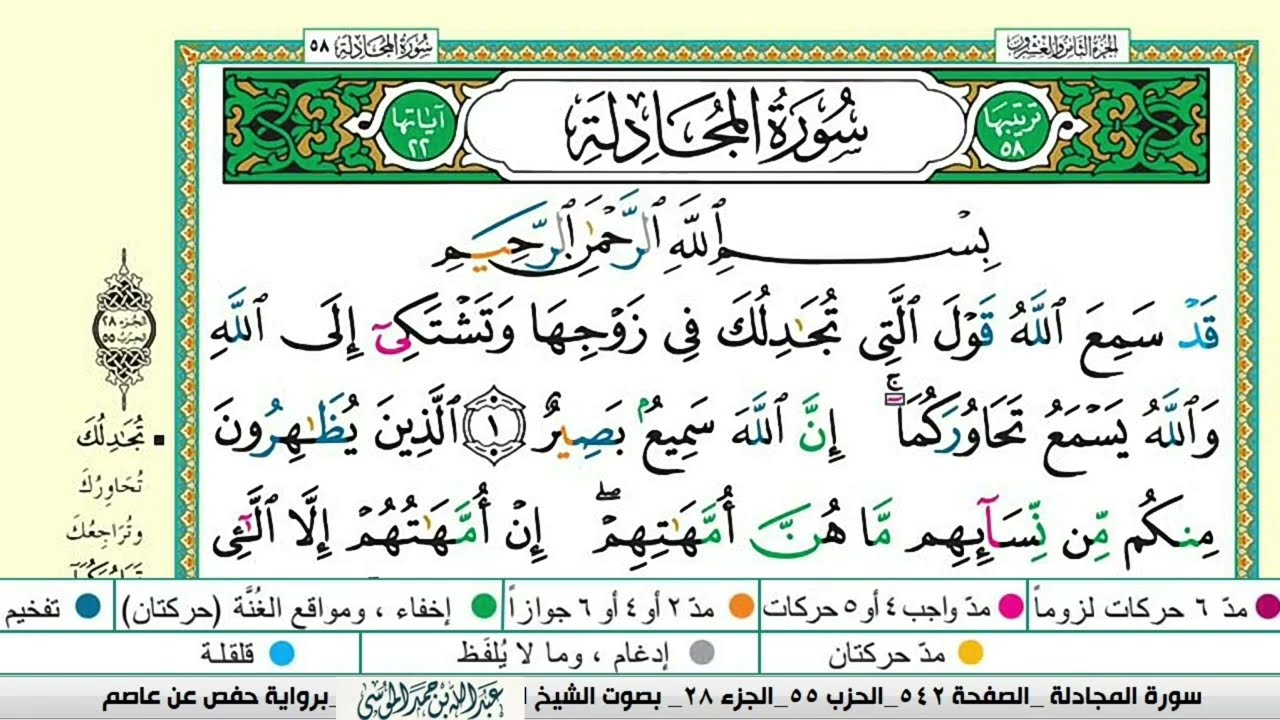 الجزء الثامن والعشرون
سورة المجادلة ٥٨
ترتيبها ٥٨
سُورَةُ المُجَادِلَةِ
آياتها ٢٢
بِسْمِ ٱللَّهِ ٱلرَّحْمَٰنِ ٱلرَّحِيمِ
قَدْ سَمِعَ ٱللَّهُ قَوْلَ ٱلَّتِى تُجَٰدِلُكَ فِى زَوْجِهَا وَتَشْتَكِىٓ إِلَى ٱللَّهِ
وَٱللَّهُ يَسْمَعُ تَحَاوُرَكُمَآ ۚ إِنَّ ٱللَّهَ سَمِيعٌۢ بَصِيرٌ ١ ٱلَّذِينَ يُظَٰهِرُونَ
مِنكُم مِّن نِّسَآئِهِم مَّا هُنَّ أُمَّهَٰتِهِمْ ۖ إِنْ أُمَّهَٰتُهُمْ إِلَّا ٱلَّٰٓـِٔى
الجزء ٢٨
الحزب ٥٥
تُجَٰدِلُكَ
تُحَاوِرُكَ
وتُرَاجِعُكَ
مدّ ٦ حركات لزوماً
مدّ واجب ٤ أو ٥ حركات
مدّ ٢ أو ٤ أو ٦ جوازاً
إخفاء ، ومواقع الغُنَّة (حركتان)
تفخيم
مدّ حركتان
إدغام ، وما لا يُلفَظ
قلقلة
سورة المجادلة _الصفحة ٥٤٢_الحزب ٥٥_الجزء ٢٨_ بصوت الشيخ عبدالله بن حمد الموسى _برواية حفص عن عاصم